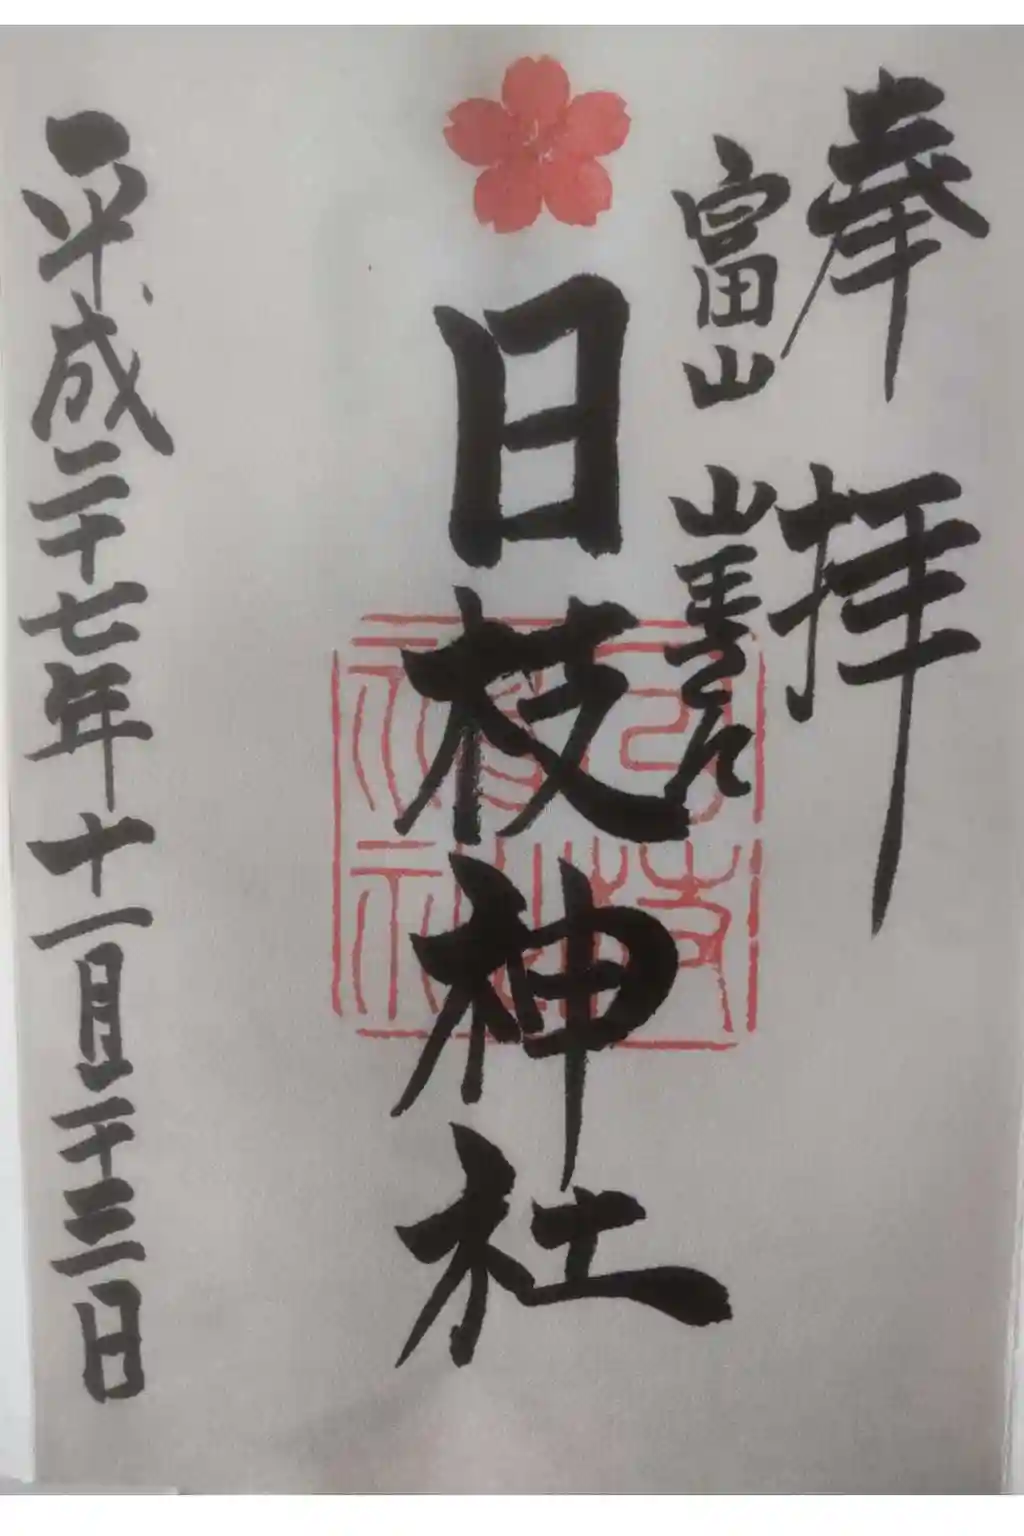 奉拝
富山 山王さん
日枝神社
日枝
神社
平成二十七年十一月二十三日